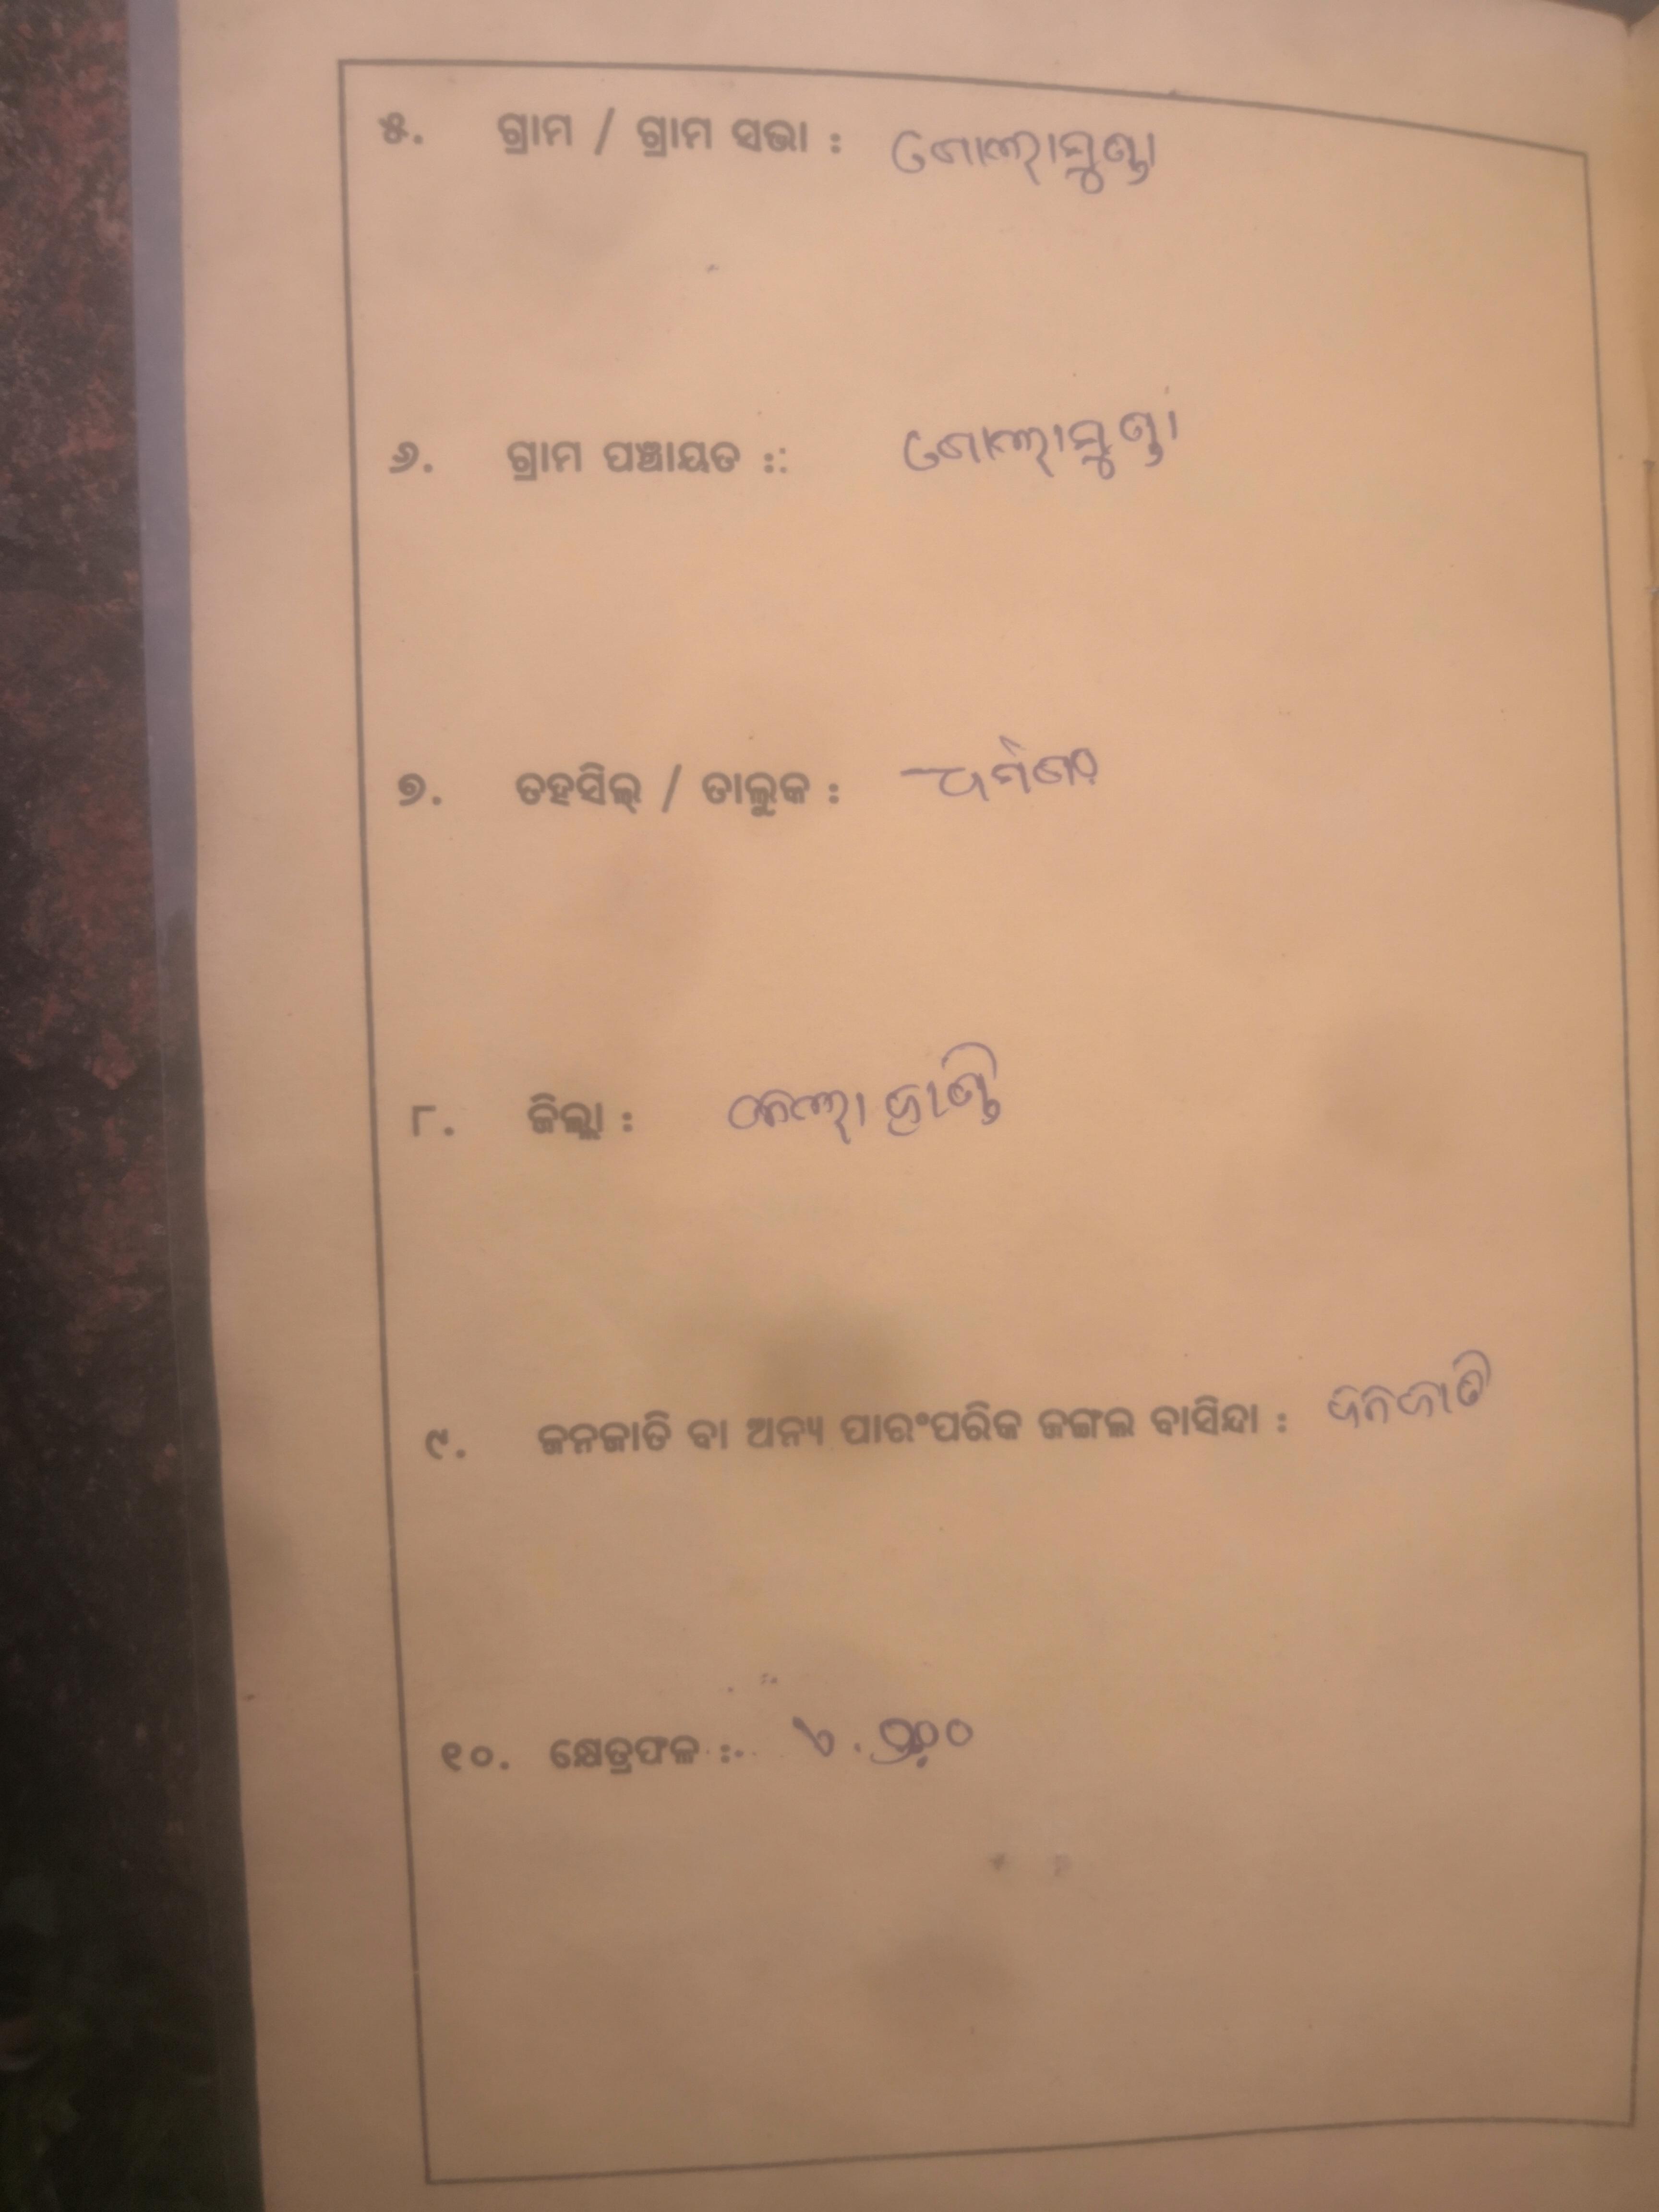 ୫. ଗ୍ରାମ / ଗ୍ରାମ ସଭା : ଗୋଲାମୁଣ୍ଡା
୬. ଗ୍ରାମ ପଞ୍ଚାୟତ : ଗୋଲାମୁଣ୍ଡା
୭. ତହସିଲ୍ / ତାଲୁକ : ଧର୍ମଗଡ଼
୮. ଜିଲ୍ଲା : କଳାହାଣ୍ଡି
୯. ଜନଜାତି ବା ଅନ୍ୟ ପାରଂପରିକ ଜଙ୍ଗଲ ବାସିନ୍ଦା : ଜନଜାତି
୧୦. କ୍ଷେତ୍ରଫଳ :